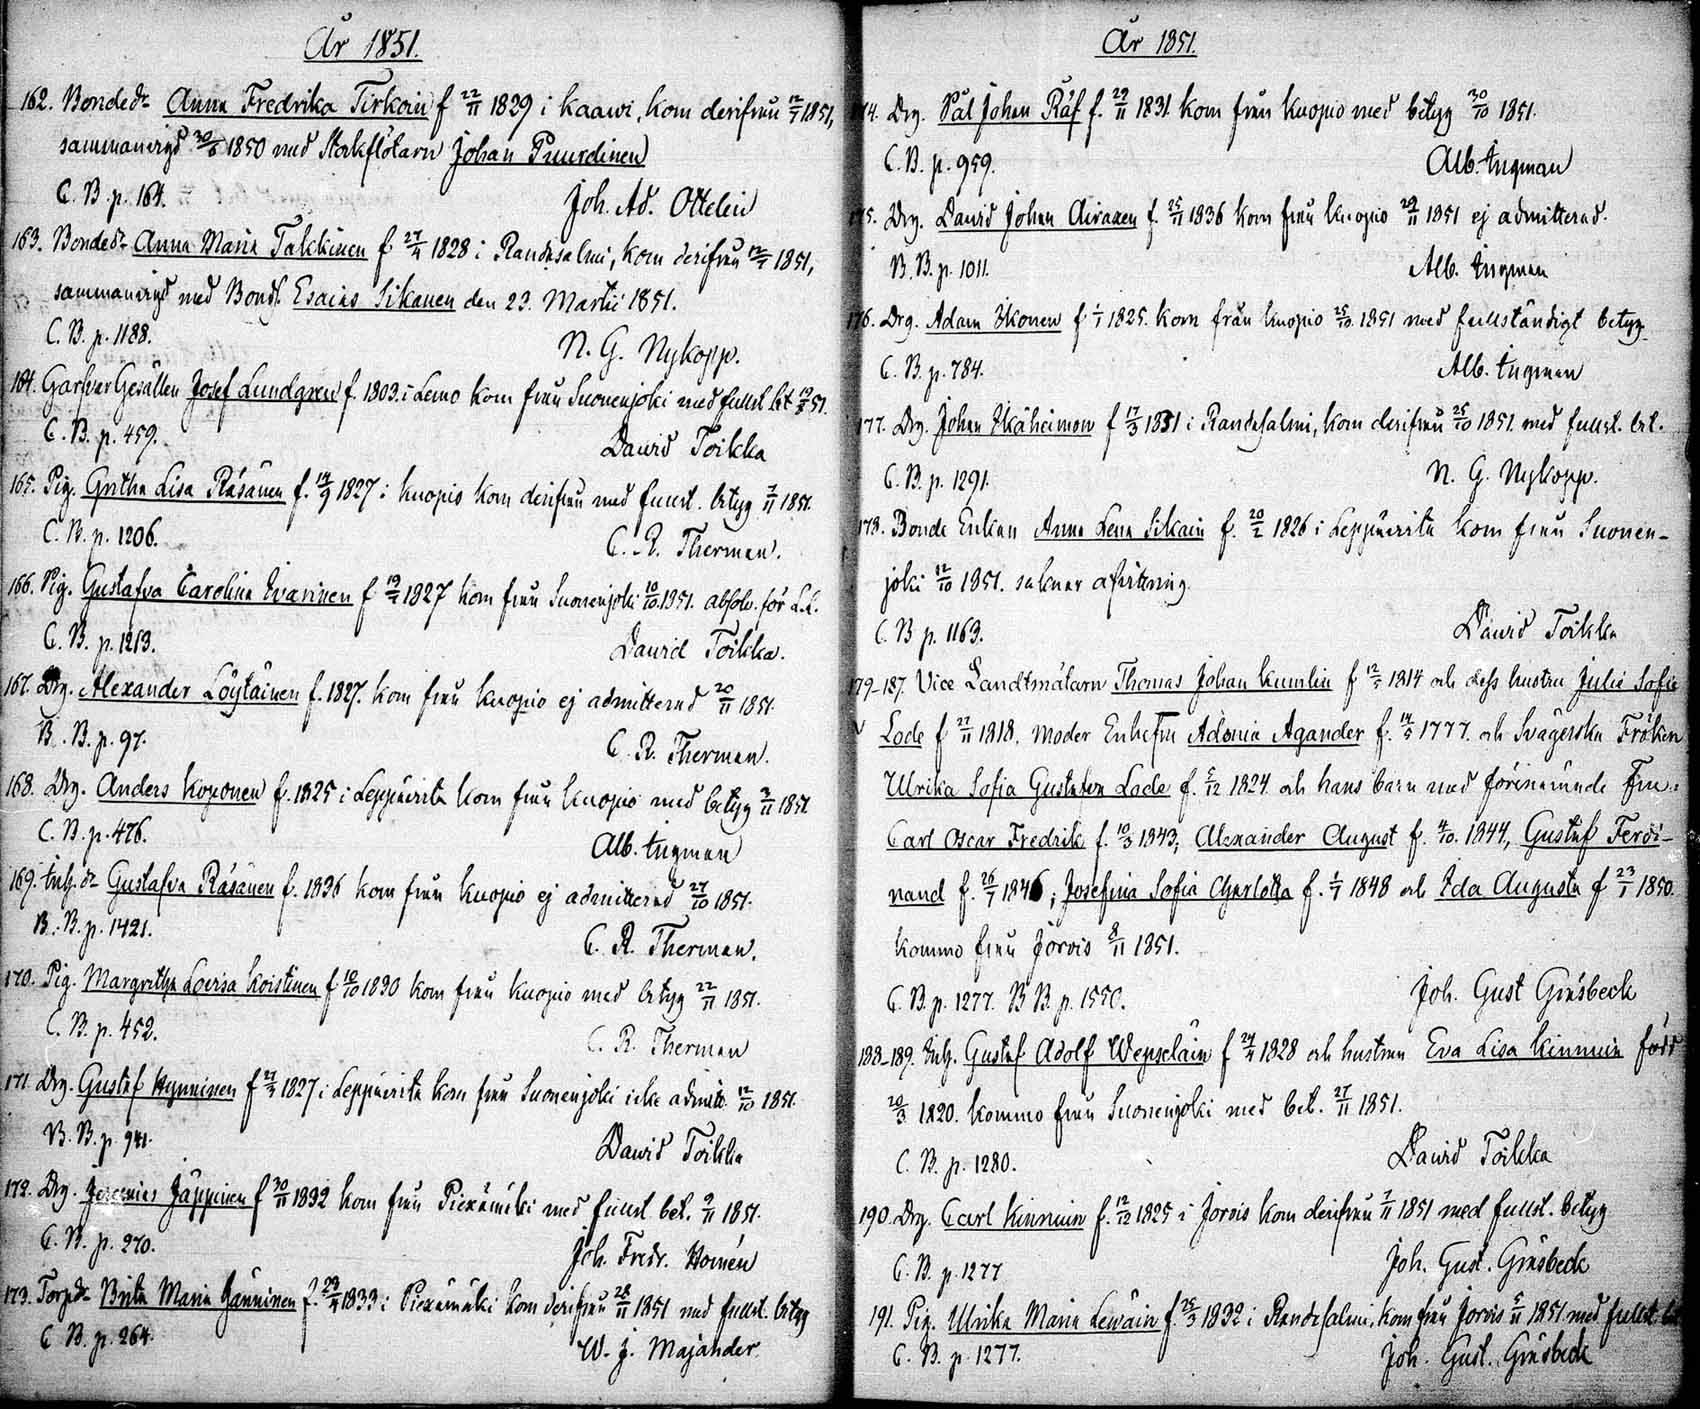 År 1851.
162. Bondedr Anna Fredrika Tirkoin f 22/11 1829 i Kaawi, kom derifrån 12/7 1851,
sammanvigd 30/6 1850 med Stockflötarn Johan Puurdinen
C. B. p. 164.
Joh. Ad. Ottelin
163. Bondedr Anna Maria Takkinen f 27/4 1828 i Randasalmi, kom derifrån 12/7 1851,
sammanvigd med Bonds. Esaias Sikanen den 23. Martii 1851.
C. B. p. 1188.
N. G. Nykopp.
164. Garfvar Gesällen Josef Lundgren f. 1803. i Lemo kom från Suonenjoki med fullst. bet 51.
C. B. p. 459.
David Toikka
165. Pig. Gretha Lisa Räsänen f. 14/9 1827 i Kuopio kom derifrån med fullst. betyg 7/11 1851.
C. B. p. 1206.
C. R. Therman.
166. Pig. Gustafva Carolina Ivarinen f. 19/7 1827 kom från Suonenjoki 10/10 1851. absolv. för L.L.
C. B. p. 1213.
David Toikka.
167. Drg. Alexander Löytäinen f. 1827. kom från Kuopio ej admitterad 20/11 1851.
B. B. p. 97.
C. R. Therman.
168. Drg. Anders Koponen f. 1825 i Leppävirta kom från Kuopio med betyg 3/11 1851.
C. B. p. 476.
Alb. Ingman
169. Inh. dr Gustafva Räsänen f. 1836 kom från Kuopio ej admitterad 27/10 1851.
B. B. p. 1421.
C. R. Therman.
170. Pig. Margretha Lovisa Koistinen f 10/10 1830 kom från Kuopio med betyg 22/11 1851.
C. B. p. 452.
C. R. Therman
171. Drg. Gustaf Hynninen f 27/3 1827 i Leppävirta kom från Suonenjoki icke admitt. 12/10 1851.
B. B. p. 941.
David Toikka
172. Drg. Jeremias Jäppinen f 30/11 1832 kom från Piexämäki med fullst. bet. 9/11 1851.
C. B. p. 270.
Joh. Fredr. Homén
173. Torp.dr Brita Maria Hänninen f. 29/4 1833 i Piexämäki kom derifrån 28/11 1851 med fullst. betyg
C B. p. 264.
W. J. Majander
År 1851.
174. Drg. Pål Johan Räf f. 29/11 1831 kom från Kuopio med betyg 30/10 1851.
C. B. p. 959.
Alb. Ingman
175. Drg. David Johan Airaxen f. 25/11 1836 kom från Kuopio 29/11 1851 ej admitterad.
B. B. p. 1011.
Alb. Ingman
176. Drg. Adam Ikonen f 1/1 1825. kom från Kuopio 25/10 1851 med fullständigt betyg.
C. B. p. 784.
Alb. Ingman
177. Drg. Johan Ikäheimon f 17/3 1831 i Randasalmi, kom derifrån 25/10 1851. med fullst. bet.
C. B. p. 1291.
N. G. Nykopp.
178. Bonde Enkan Anna Lena Sikain f. 20/2 1826 i Leppävirta kom från Suonen-
joki 12/10 1851. saknar afvittring.
C. B p. 1163.
David Toikka
179-187. Vice Landtmätarn Thomas Johan Kumlin f 12/5 1814 och dess hustru Julie Sofie
Lode f 27/11 1818. moder Enkefru Adonia Agander f. 14/5 1777. och Svägerska Fröken
Ulrika Sofia Gustafva Lode f. 5/12 1824 och hans barn med förenämnde Fru:
Carl Oscar Fredrik f. 10/3 1843, Alexander August f. 4/10. 1844, Gustaf Ferdi-
nand f. 26/7 1846; Josefina Sofia Charlotta f. 1/7 1848 och Ida Augusta f 23/1 1850.
kommo från Jorois 8/11 1851.
C. B. p. 1277. B B. p. 1550.
Joh. Gust Gråsbeck
188-189. Inh. Gustaf Adolf Wepseläin f 24/4 1828 och hustrun Eva Lisa Kinnuin född
20/3 1820. kommo från Suonenjoki med bet. 27/11 1851.
C. B. p. 1280.
David Toikka
190. Drg. Carl Kinnuin f. 12/12 1825 i Jorois kom derifrån 7/11 1851 med fullst. betyg
C. B. p. 1277
Joh. Gust. Gråsbeck
191. Pig. Ulrika Maria Lewäin f. 25/3 1832 i Randasalmi, kom från Jorois 5/11 1851 med fullst. bet
C. B. p. 1277.
Joh. Gust. Gråsbeck